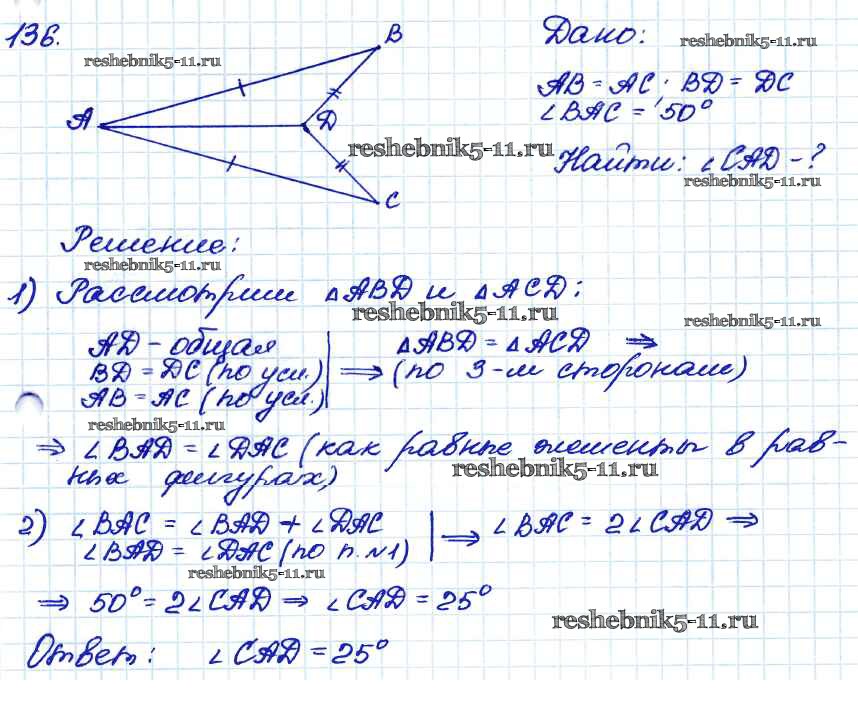 136.
B
Дано:
reshebnik5-11.ru
reshebnik5-11.ru
AB = AC; BD = DC
∠BAC = 50°
A
D
reshebnik5-11.ru
Найти: ∠CAD - ?
reshebnik5-11.ru
C
Решение:
reshebnik5-11.ru
1) Рассмотрим △ABD и △ACD:
reshebnik5-11.ru
reshebnik5-11.ru
AD - общая
BD = DC (по усл.)
AB = AC (по усл.)
⇒
△ABD = △ACD ⇒
(по 3-м сторонам)
reshebnik5-11.ru
⇒ ∠BAD = ∠DAC (как равные элементы в рав-
ных фигурах)
reshebnik5-11.ru
2) ∠BAC = ∠BAD + ∠DAC
∠BAD = ∠DAC (по п. №1)
⇒ ∠BAC = 2∠CAD ⇒
reshebnik5-11.ru
⇒ 50° = 2∠CAD ⇒ ∠CAD = 25°
reshebnik5-11.ru
Ответ: ∠CAD = 25°